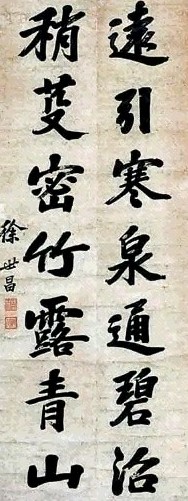 遠引寒泉通碧沼
稍芟密竹露青山
徐世昌